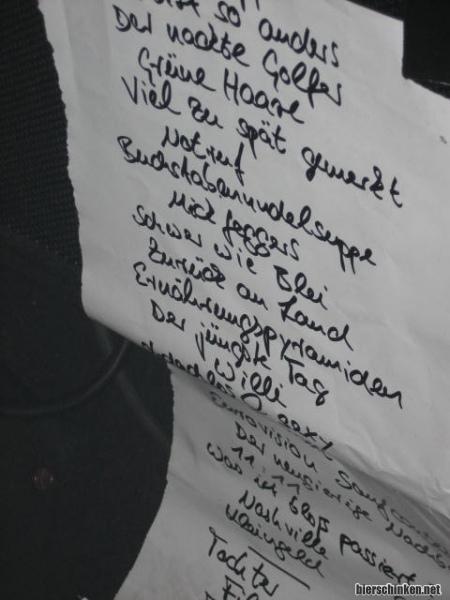 so anders
Der nackte Golfer
Grüne Haare
Viel zu spät gemerkt
Notruf
Buchstabennudelsuppe
Mick Jaggers
Schwer wie Blei
Zurück an Land
Ernährungspyramiden
Der jüngste Tag
Wille
Eurovision
Der neugierige Nachb
11.11
Was ist bloß passiert
Nashville
Kleingeld
Tochter
bierschinken.net